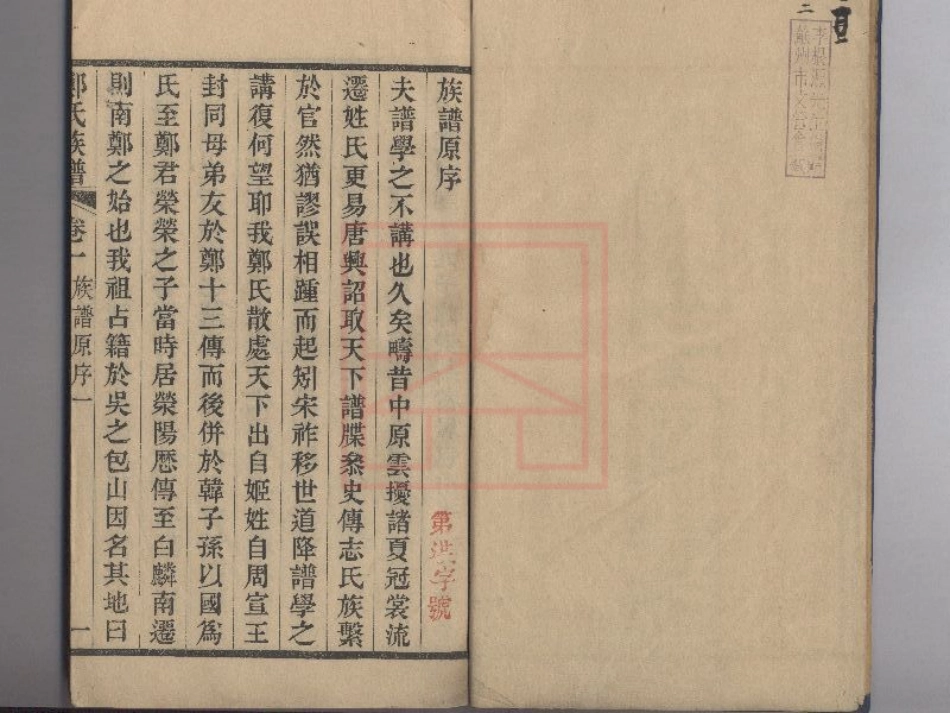 族譜原序
夫譜學之不講也久矣疇昔中原雲擾諸夏冠裳流
遷姓氏更易唐興詔取天下譜牒叅史傳志氏族繫
於官然猶謬誤相踵而起矧宋祚移世道降譜學之
講復何望耶我鄭氏散處天下出自姬姓自周宣王
封同母弟友於鄭十三傳而後併於韓子孫以國爲
氏至鄭君榮榮之子當時居滎陽歷傳至白麟南遷
則南鄭之始也我祖占籍於吳之包山因名其地曰
氏族譜
卷一
族譜原序一
一
第洪字號
二
蘇州市